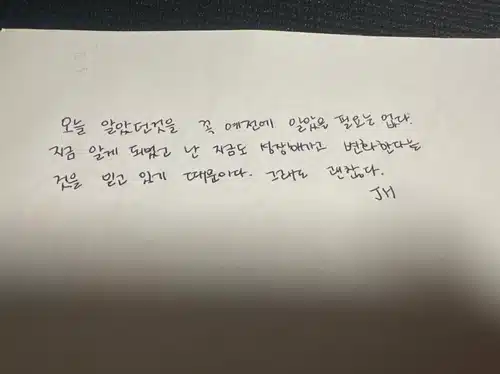 오늘 알았던것을 꼭 예전에 알았을 필요는 없다.
지금 알게 되었고 난 지금도 성장해가고 변화한다는
것을 믿고 있기 때문이다. 그래도 괜찮다.
JH